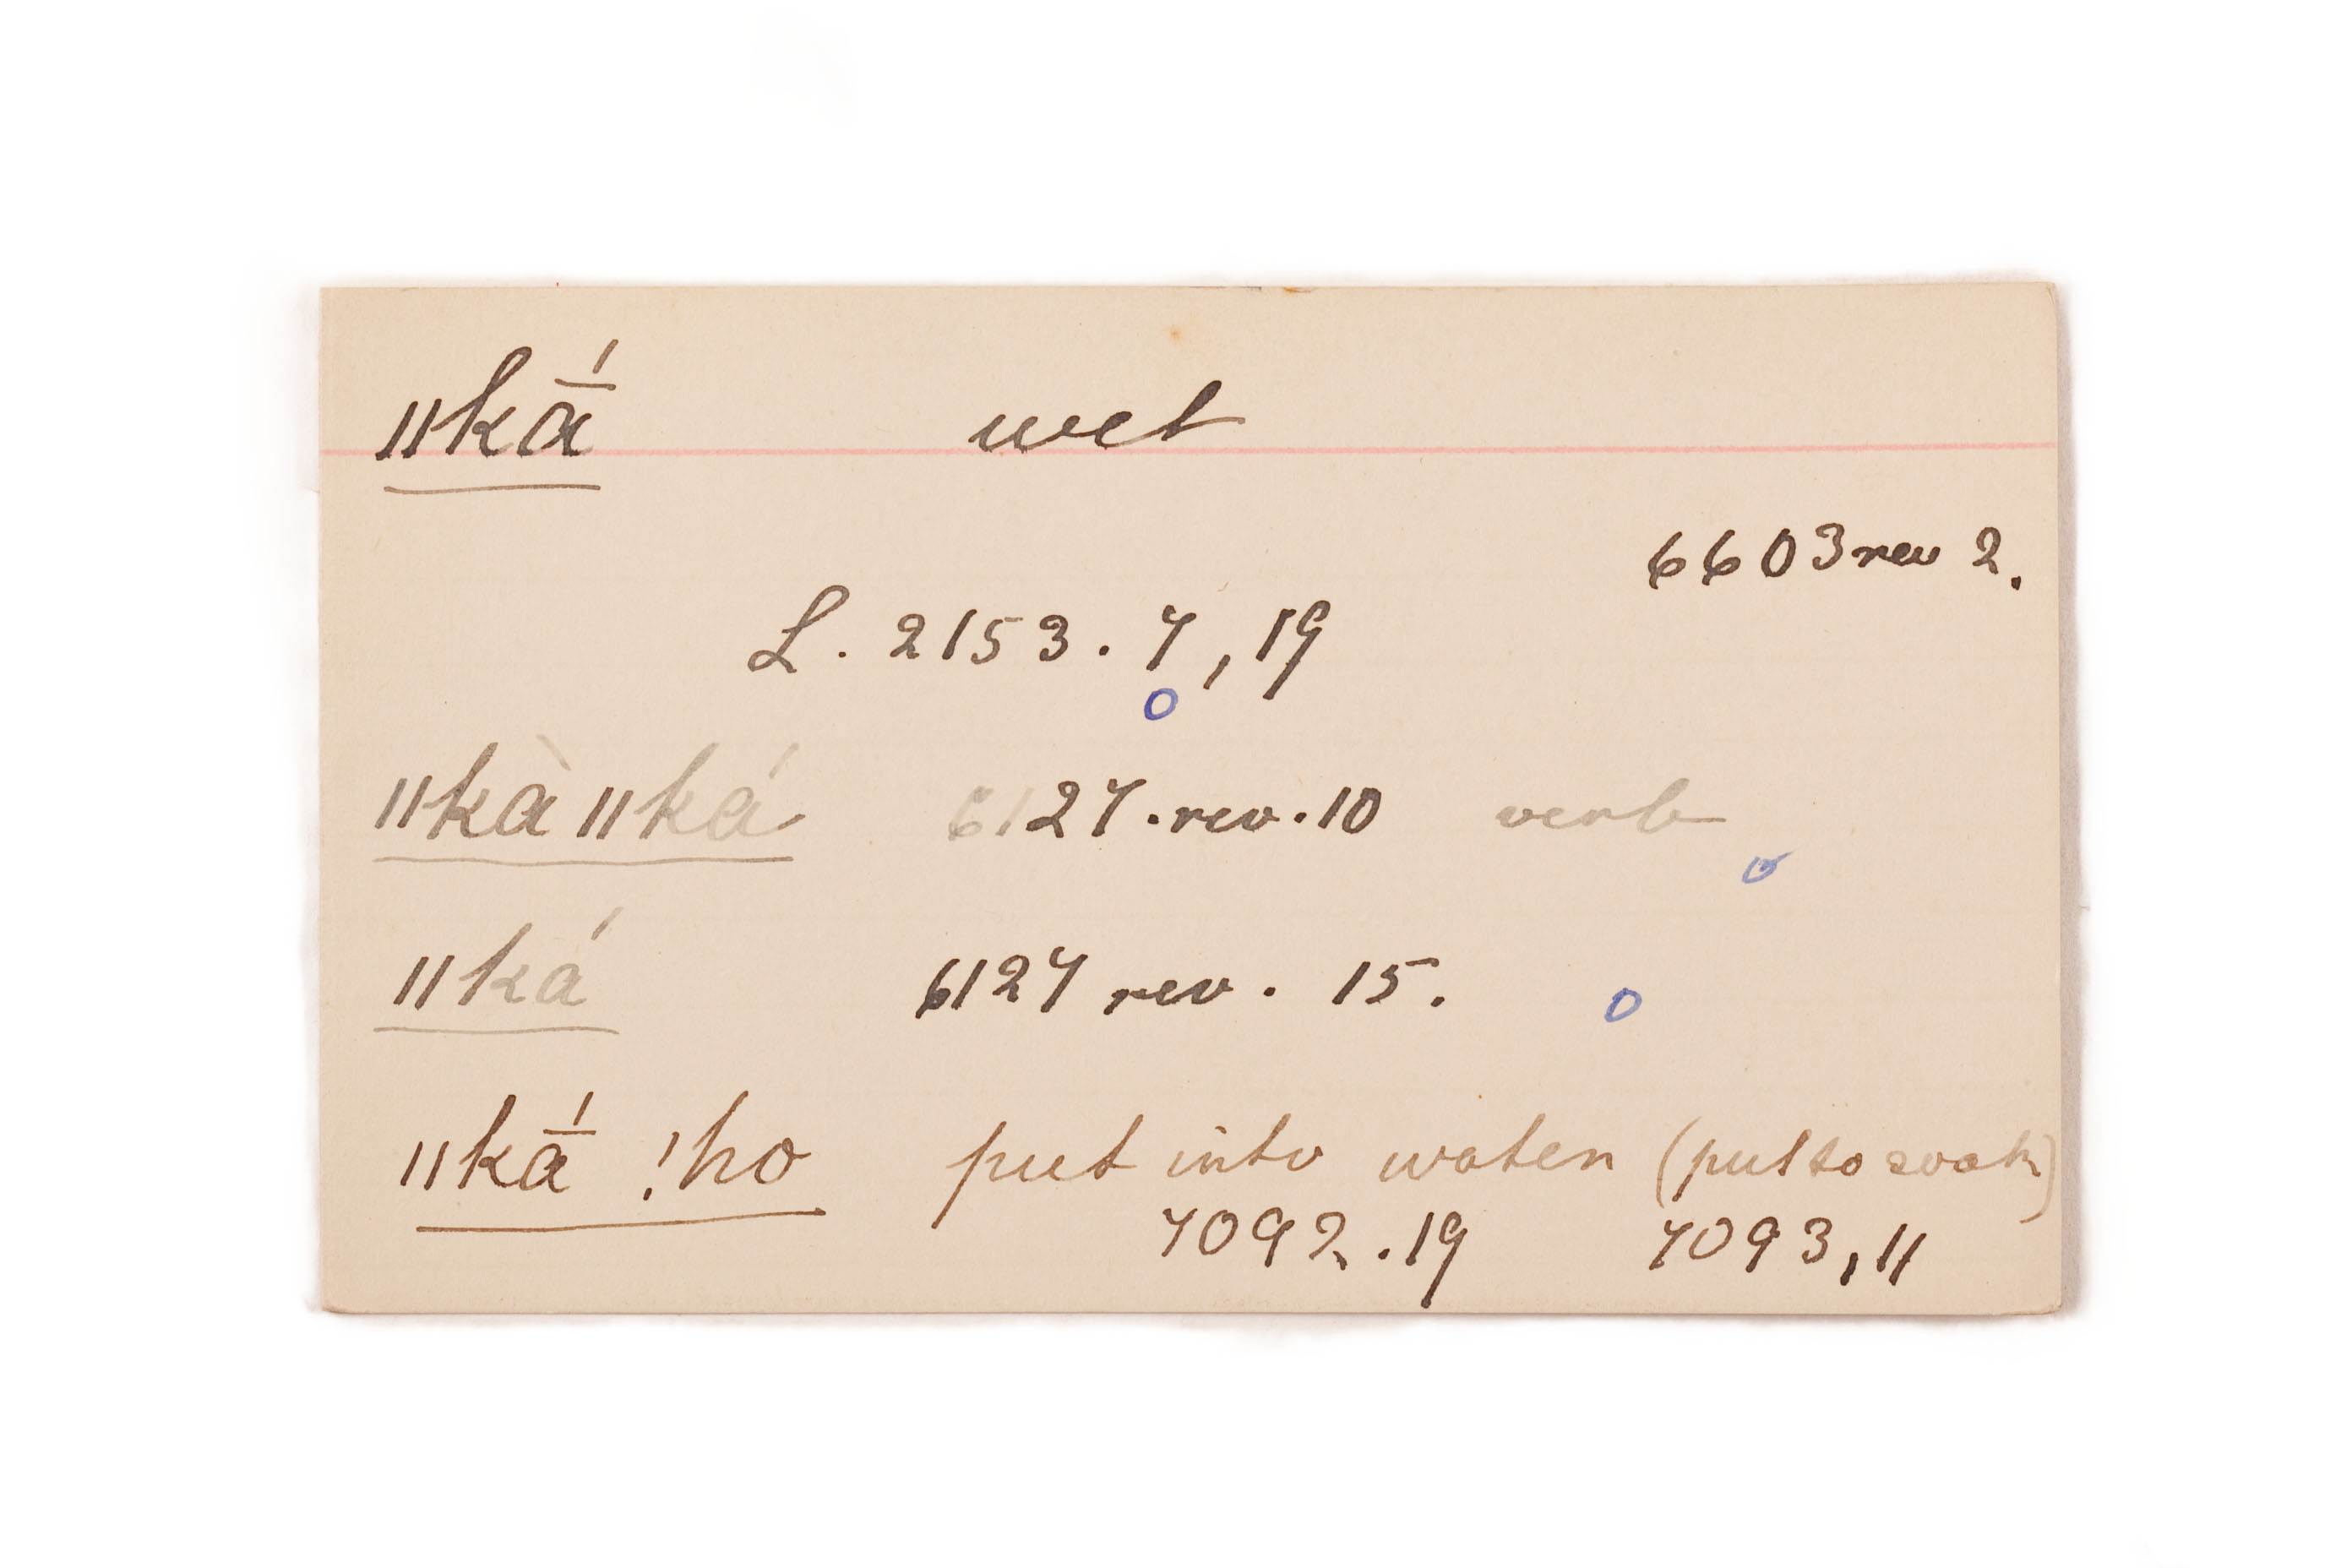 ǁkā́ wet
6603 rev 2.
L. 2153. 7, 19
o
ǁkà ǁká 6127. rev. 10 verb
o
ǁká 6127 rev. 15. o
ǁkā́ !ho put into water (put to soak)
7092.19 7093,11